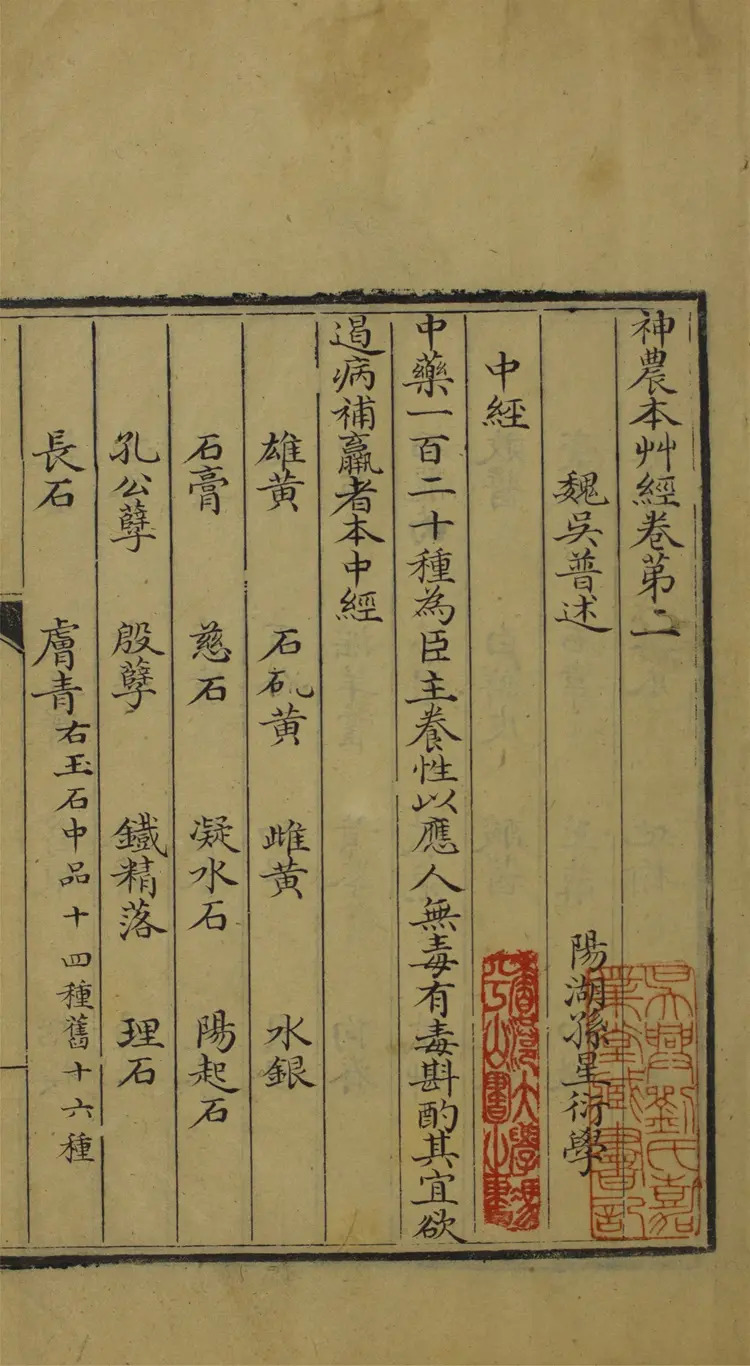 神農本艸經卷第二
魏吳普述 陽湖孫星衍學
中經
中藥一百二十種為臣主養性以應人無毒有毒斟酌其宜欲
遏病補羸者本中經
雄黃 石硫黃 雌黃 水銀
石膏 慈石 凝水石 陽起石
孔公孽 殷孽 鐵精落 理石
長石 膚青 右玉石中品十四種舊十六種
吳興劉氏嘉業堂藏書記